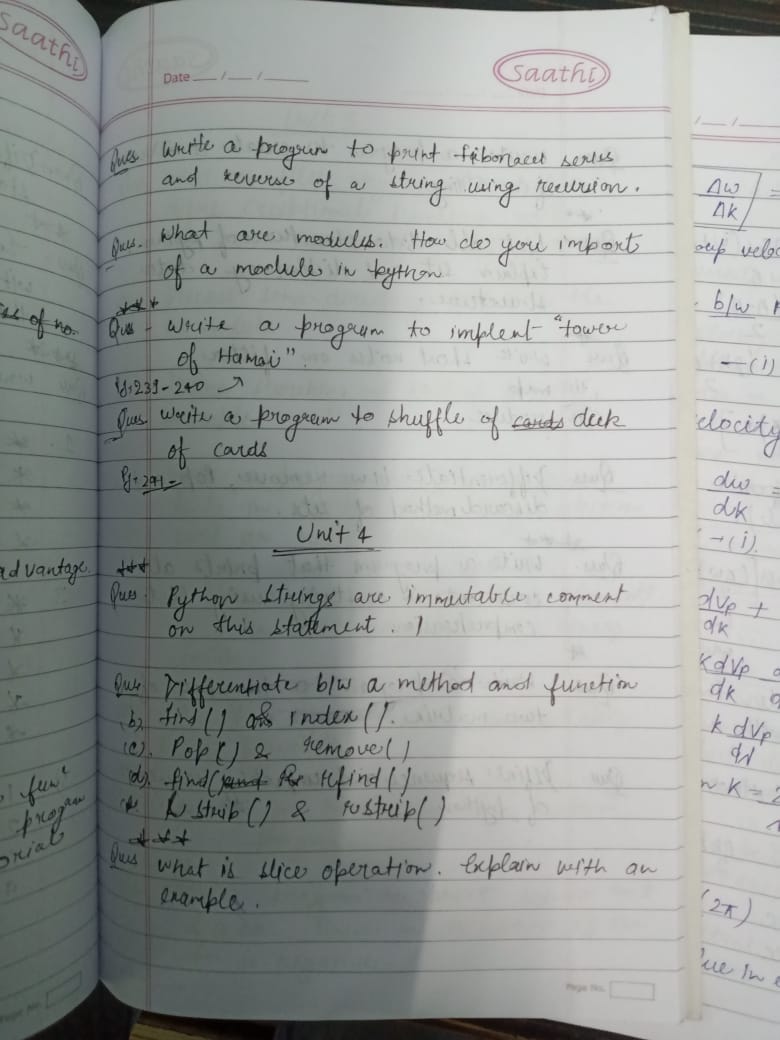 Saathi
Date __/__/____
Saathi
Ques Write a program to print fibonacci series
and reverse of a string using recursion.
Ques. What are modules. How do you import
of a module in python
***
Ques - Write a program to implent "tower
of Hanoi".
Pg:239-240
Ques Write a program to shuffle of cards deck
of cards
Pg-241-
Unit 4
***
Ques. Python strings are immutable comment
on this statement.
Ques Differentiate b/w a method and function
(b) find() and index().
(c). Pop() & remove()
(d). find() and & rfind()
L strip() & rstrip()
***
Ques What is slice operation. Explain with an
example.
Page No.
ss of no.
advantage.
func
program
orial
Page No.
__/__/__
Δw
Δk
=
oup veloc
b/w
-(i)
elocity
dw
dk
=
-(i).
dVp +
dk
k dVp
dk
k dVp
k = 2
(2π)
ue in